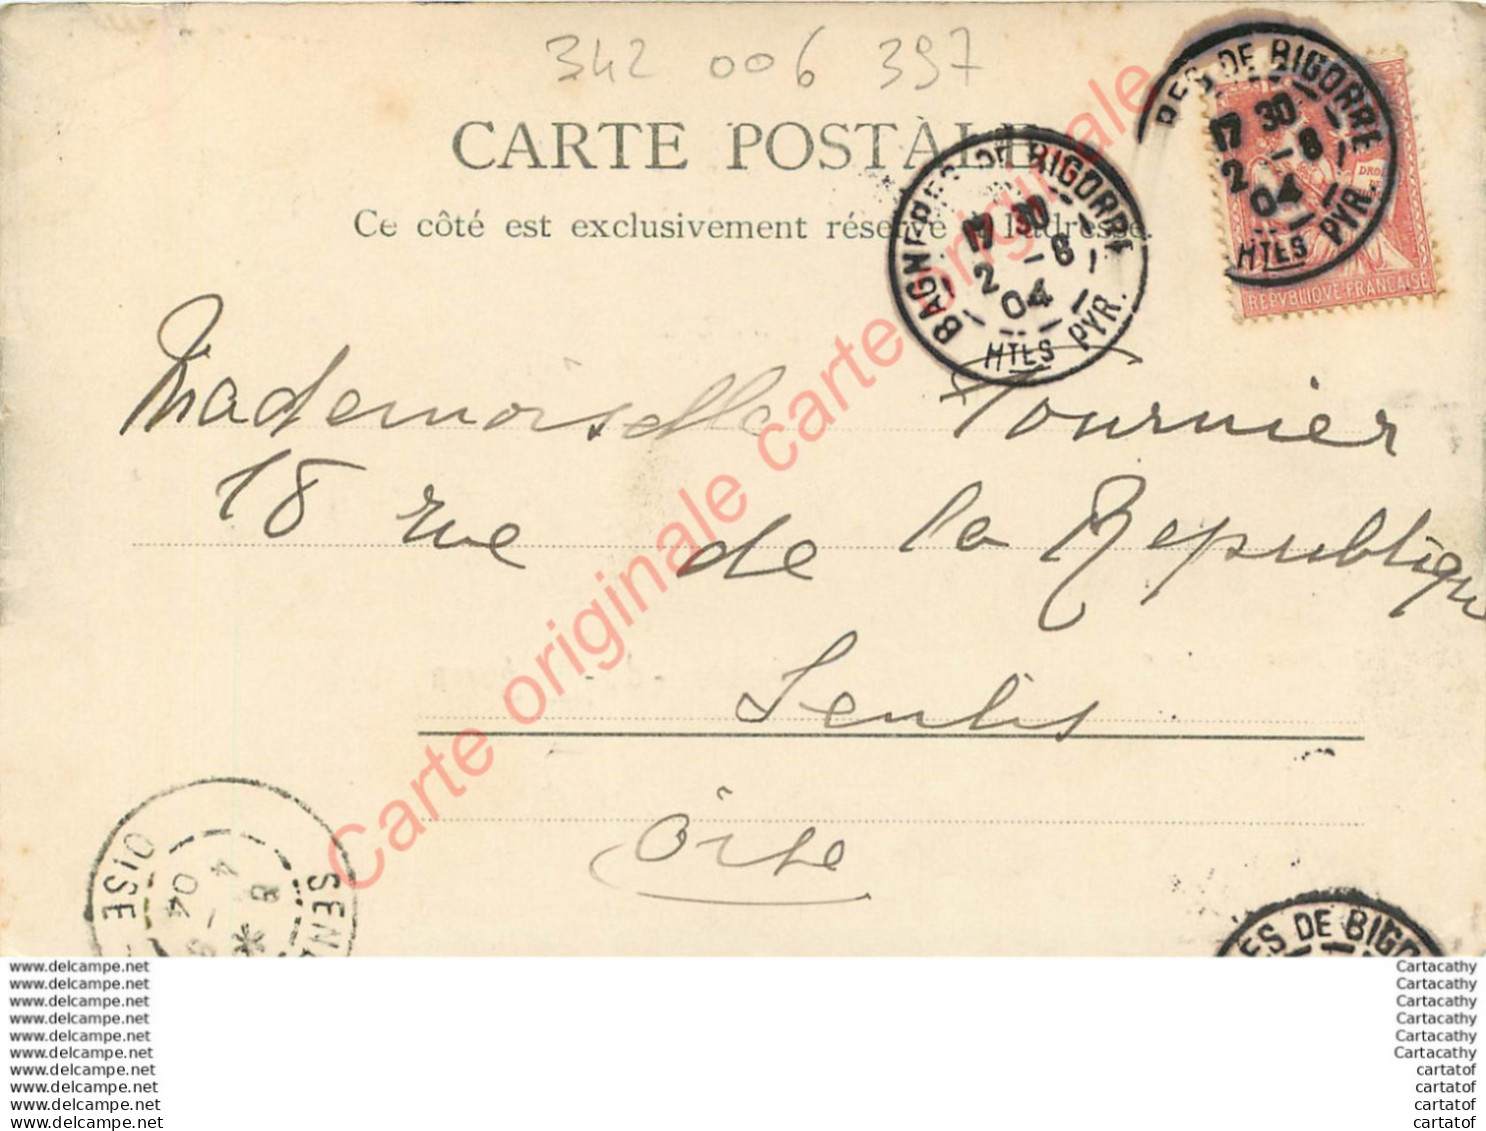 342 006 397
CARTE POSTALE
Ce côté est exclusivement réservé à l'adresse.
BAGNÈRES-DE-BIGORRE
17 30
2 -8
04
HTES PYR.
RES-DE-BIGORRE
17 30
2 -8
04
HTES PYR.
REPVBLIQVE·FRANÇAISE
Mademoiselle Fournier
18 rue de la Republique
Senlis
Oise
Carte originale carte originale
OISE
8
4
04
ES DE BIGO
www.delcampe.net
www.delcampe.net
www.delcampe.net
www.delcampe.net
www.delcampe.net
www.delcampe.net
www.delcampe.net
www.delcampe.net
www.delcampe.net
www.delcampe.net
Cartacathy
Cartacathy
Cartacathy
Cartacathy
Cartacathy
Cartacathy
cartatof
cartatof
cartatof
cartatof